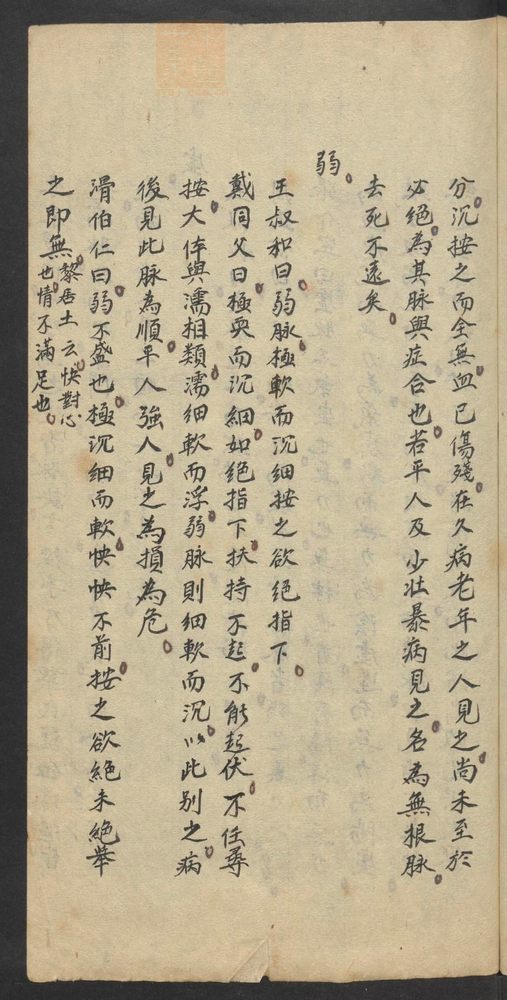 分沉按之而全無血已傷殘在久病老年之人見之尚未至於
必絕為其脉與症合也若平人及少壯暴病見之名為無根脉
去死不遠矣
弱
王叔和曰弱脉極軟而沉細按之欲絕指下
戴同父曰極耎而沉細如絕指下扶持不起不能起伏不任尋
按大体與濡相類濡細軟而浮弱脉則細軟而沉以此别之病
後見此脉為順平人強人見之為損為危
滑伯仁曰弱不盛也極沉細而軟怏怏不前按之欲絕未絕舉
之即無黎居士云怏對心
也情不滿足也